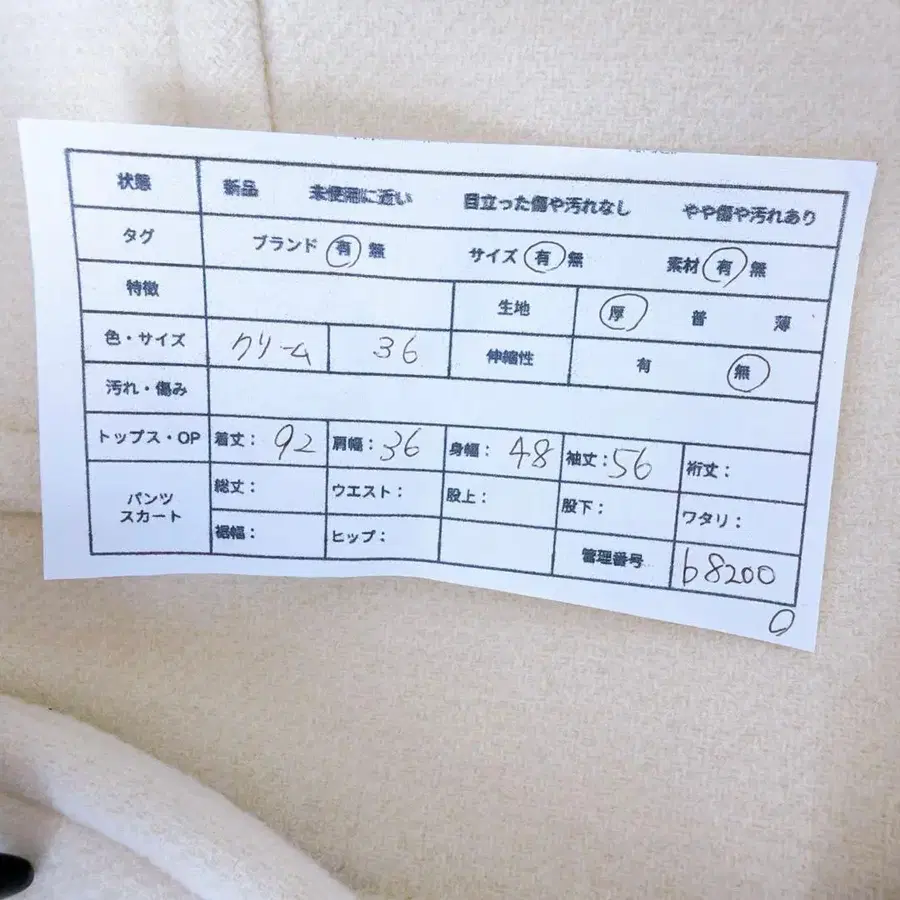 状態 新品 未使用に近い 目立った傷や汚れなし やや傷や汚れあり
タグ ブランド 有 無 サイズ 有 無 素材 有 無
特徴 生地 厚 普 薄
色・サイズ クリーム 36 伸縮性 有 無
汚れ・傷み
トップス・OP 着丈: 92 肩幅: 36 身幅: 48 袖丈: 56 裄丈:
パンツ スカート
総丈: ウエスト: 股上: 股下: ワタリ:
裾幅: ヒップ: 管理番号 b8200